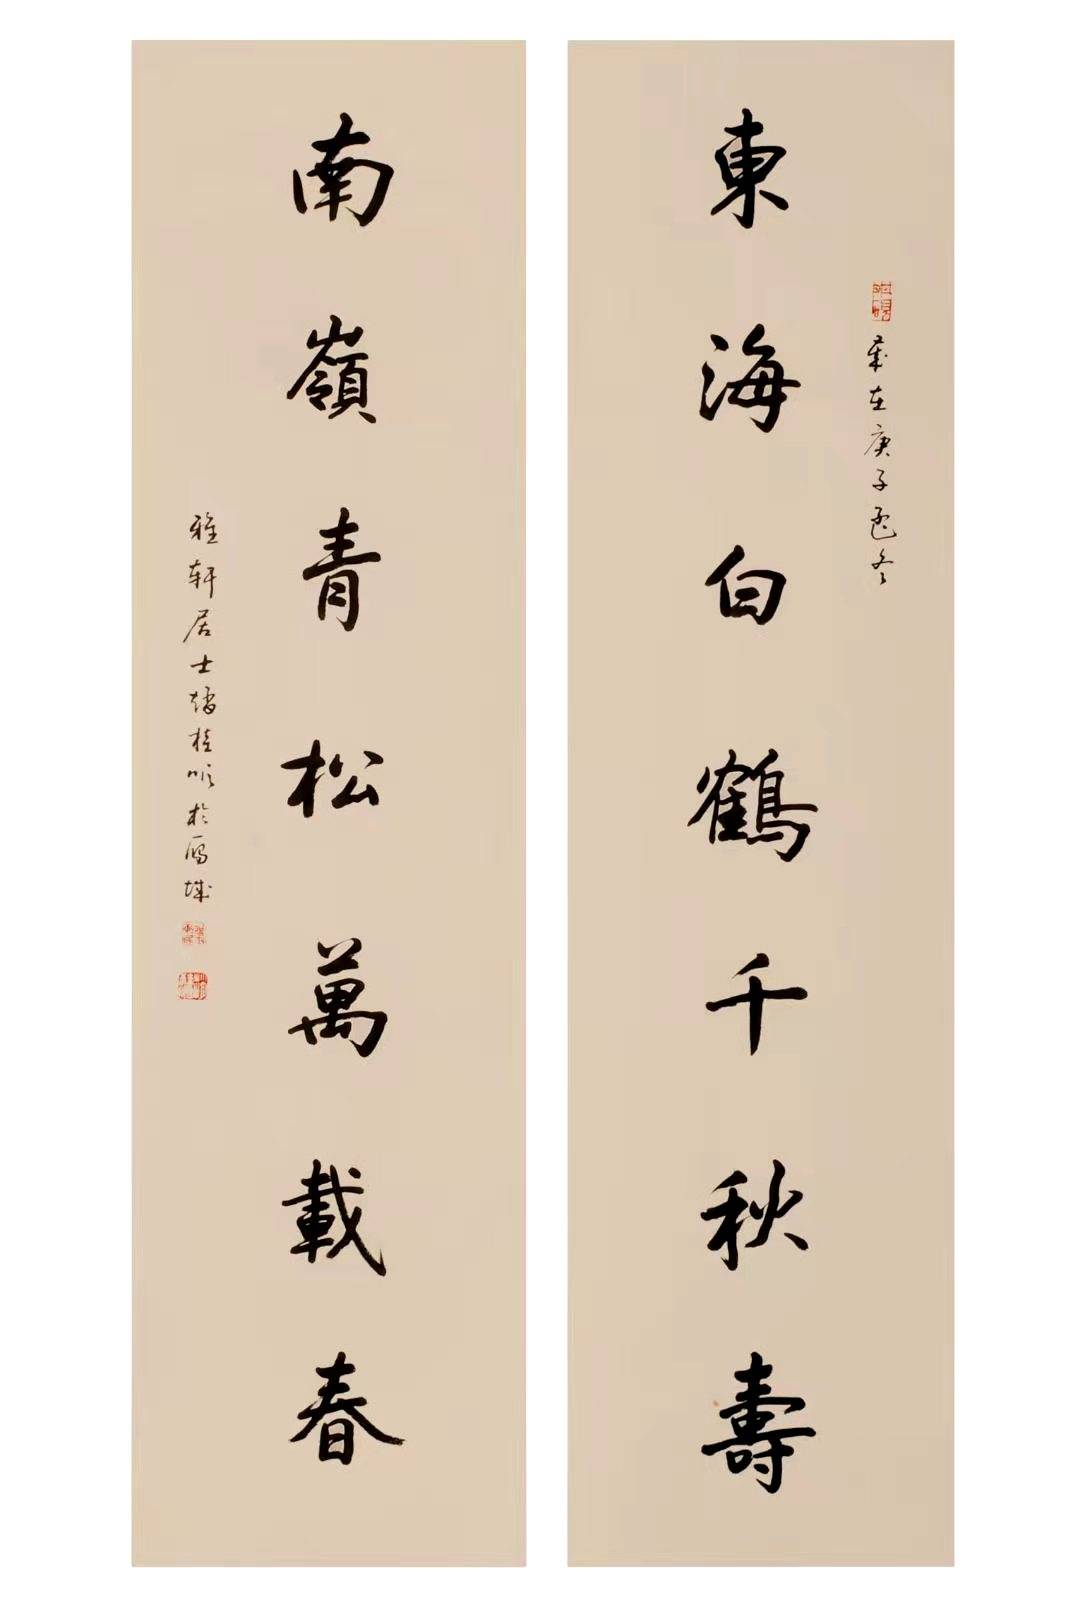 東海白鶴千秋壽
歲在庚子孟冬
南嶺青松萬載春
雅轩居士 桂顺於雁城